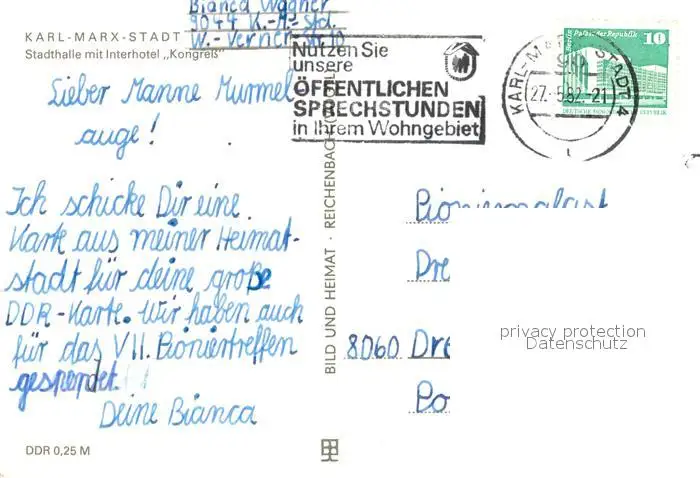 Bianca Wagner
9044 K.-M.-Std.
KARL-MARX-STADT
Stadthalle mit Interhotel „Kongreß"
Nutzen Sie
unsere
ÖFFENTLICHEN
SPRECHSTUNDEN
in Ihrem Wohngebiet
KARL-MARX-STADT 4
27.-5.82.-21
Berlin, Palast der Republik
10
DEUTSCHE DEMOKRATISCHE REPUBLIK
Lieber Manne Murmel
auge!
Ich schicke Dir eine
Karte aus meiner Heimat-
stadt für deine große
DDR-Karte. Wir haben auch
für das VII. Pioniertreffen
gespendet.
Deine Bianca
BILD UND HEIMAT · REICHENBACH
Pionierpalast
Dre
8060 Dre
Po
privacy protection
Datenschutz
DDR 0,25 M